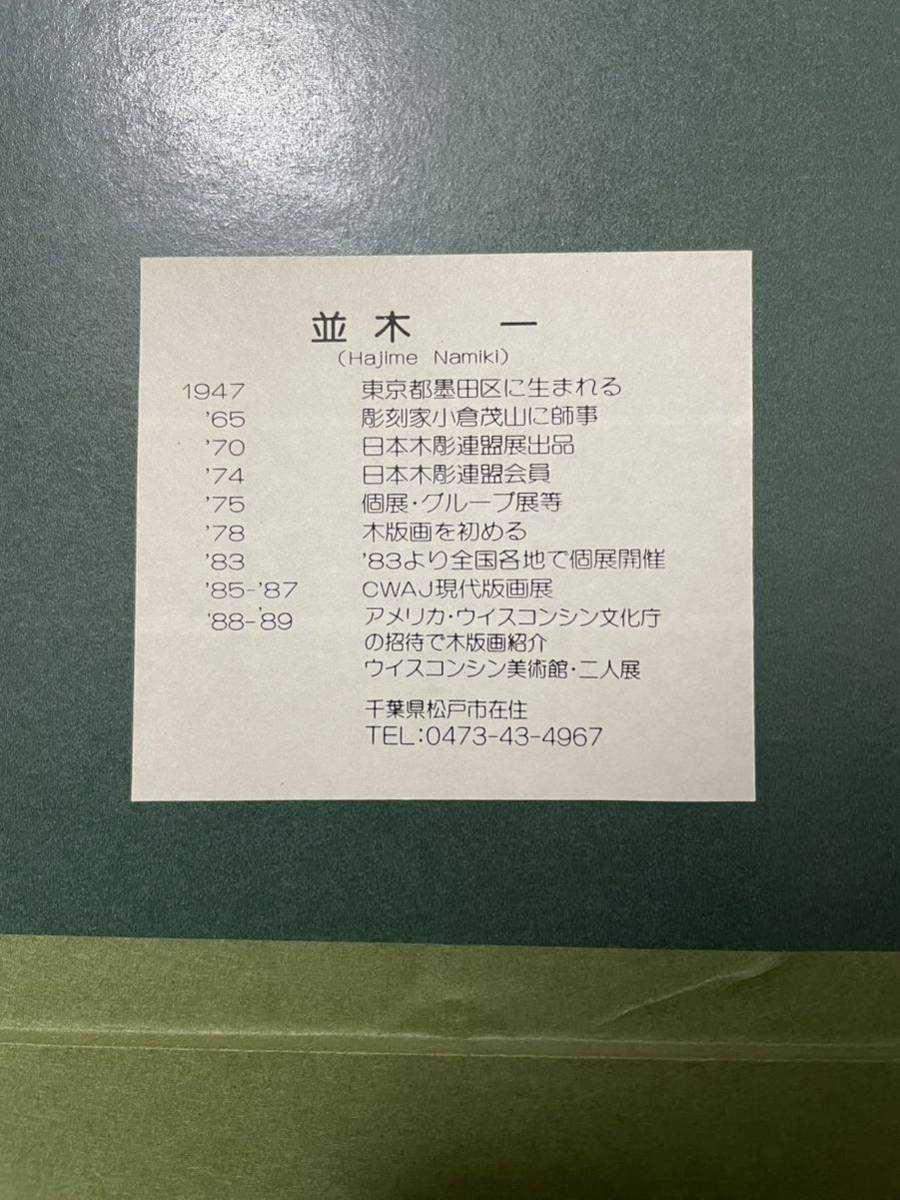 並木 一
(Hajime Namiki)
1947 東京都墨田区に生まれる
'65 彫刻家小倉茂山に師事
'70 日本木彫連盟展出品
'74 日本木彫連盟会員
'75 個展・グループ展等
'78 木版画を初める
'83 '83より全国各地で個展開催
'85-'87 CWAJ現代版画展
'88-'89 アメリカ・ウイスコンシン文化庁
の招待で木版画紹介
ウイスコンシン美術館・二人展
千葉県松戸市在住
TEL:0473-43-4967